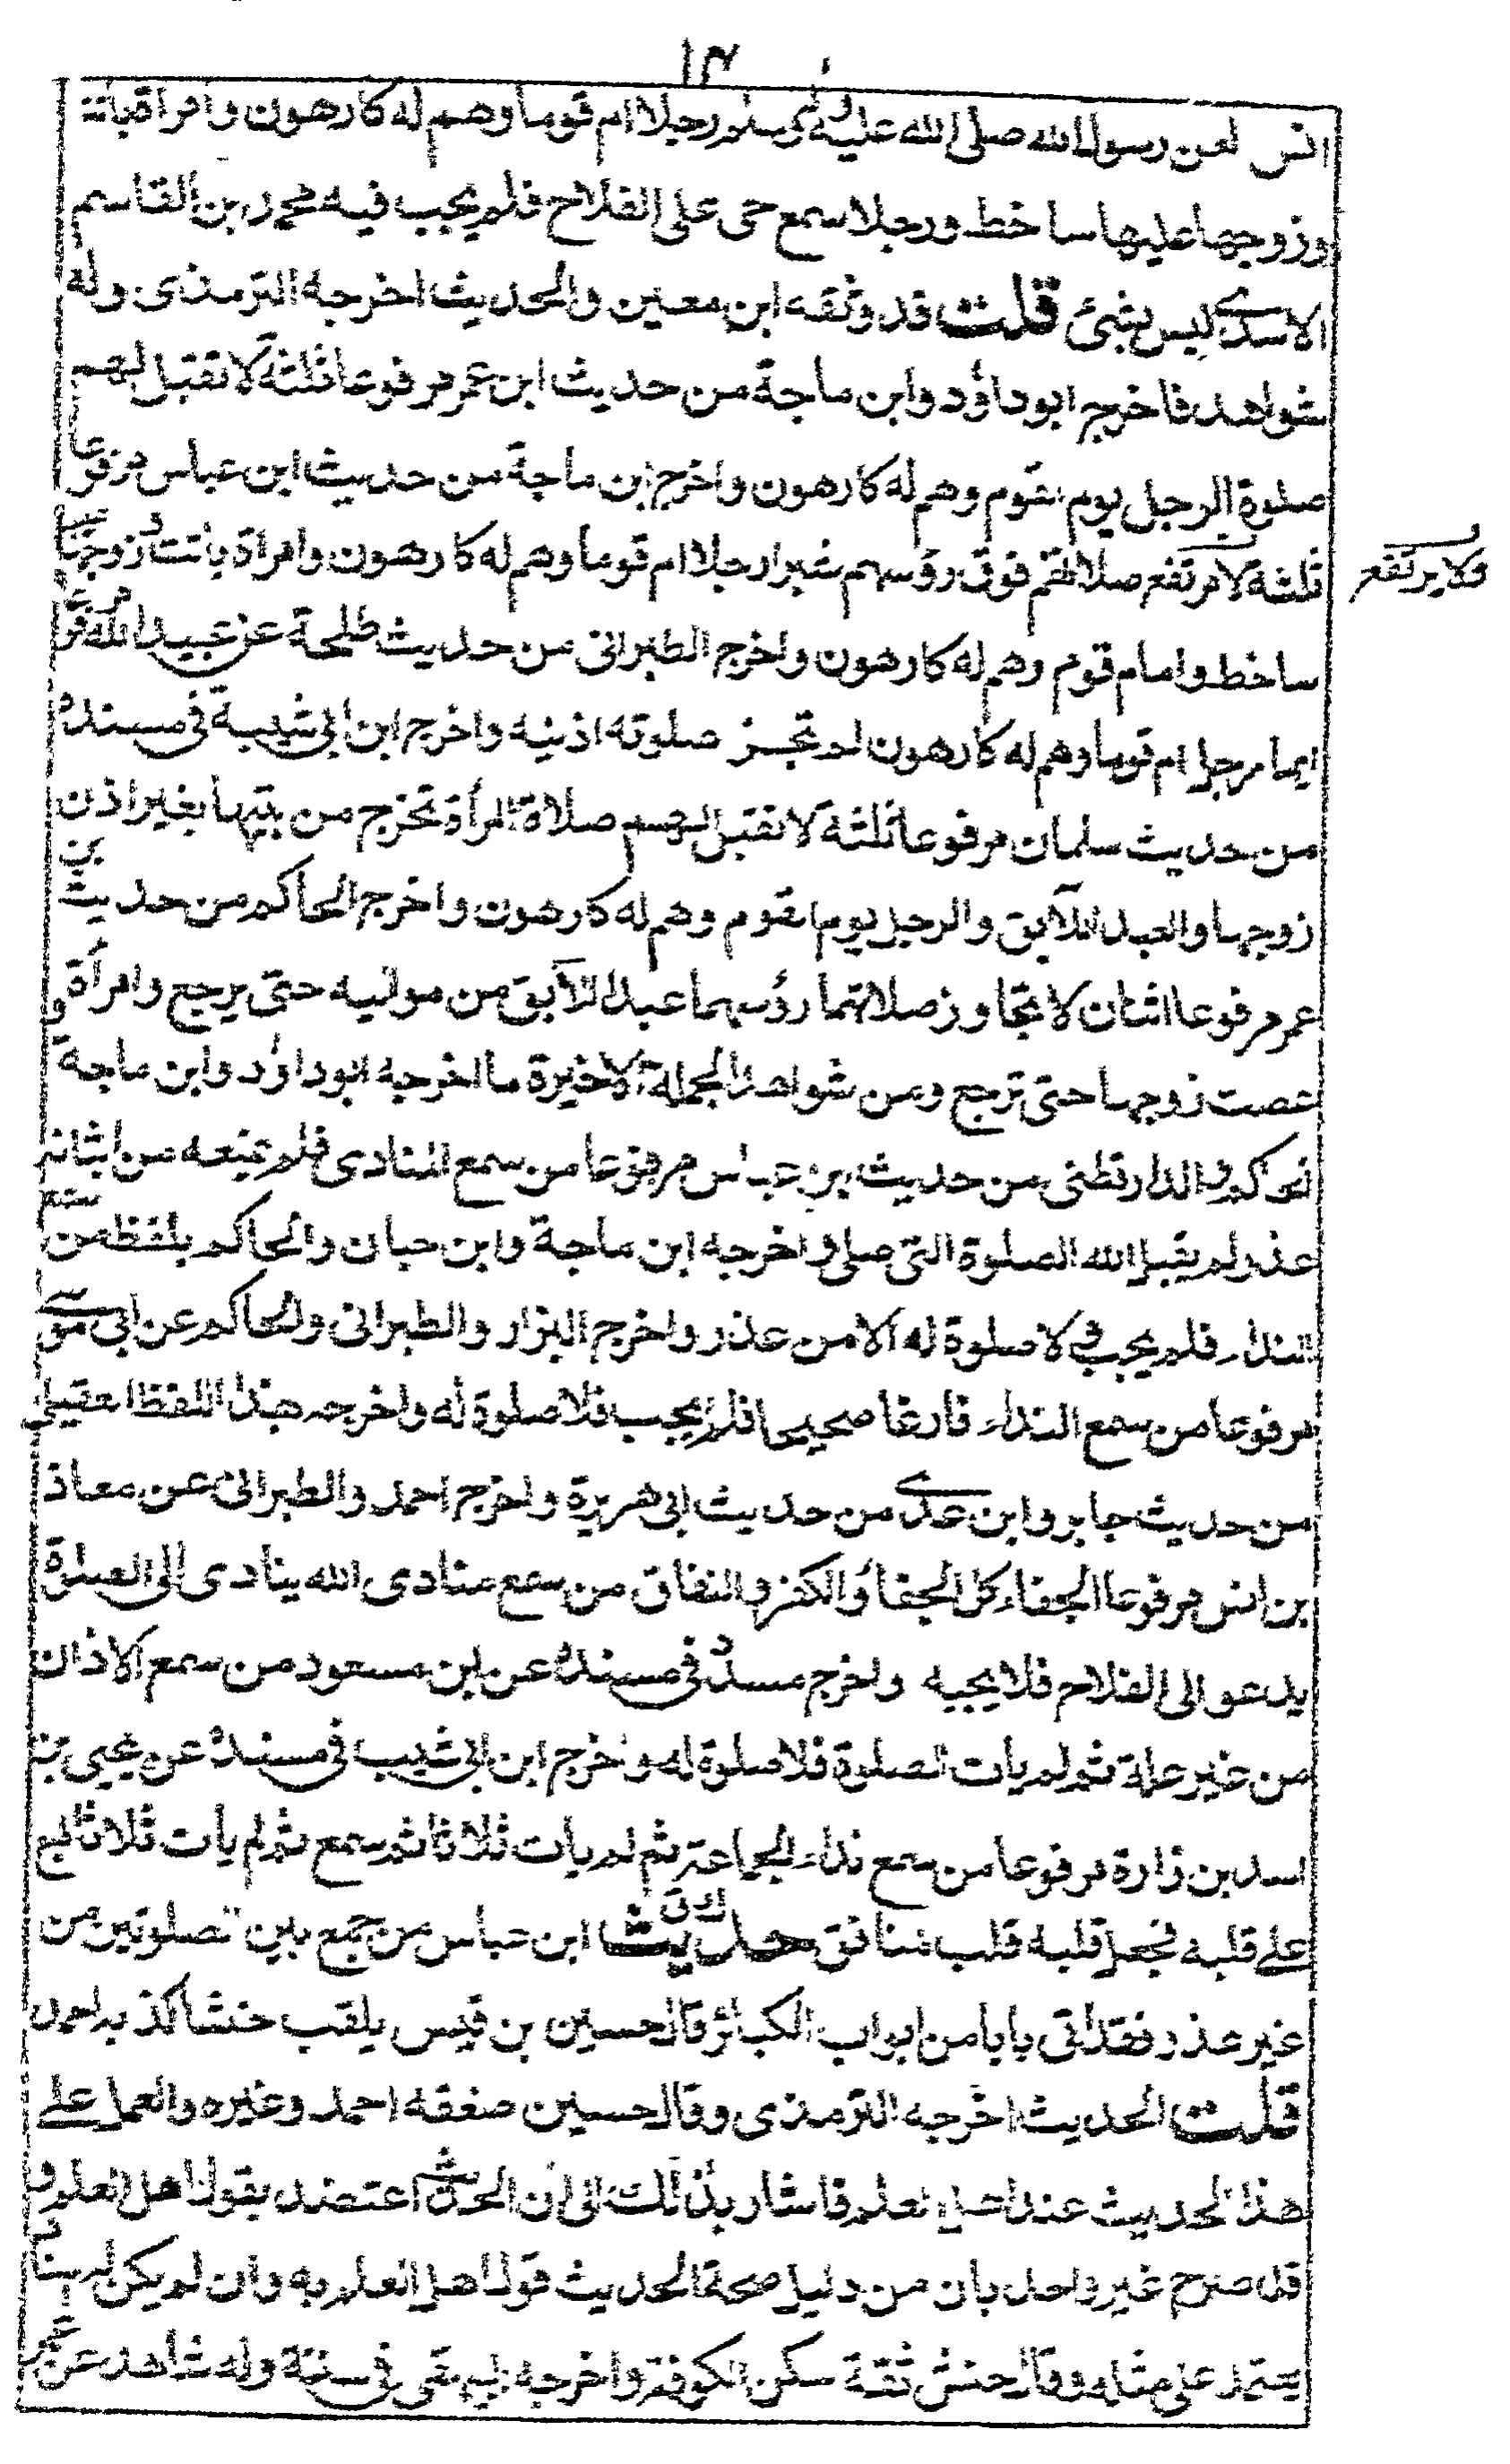 ١٣
انس لعن رسول الله صلى الله عليه وسلم رجلا ام قوما وهم له كارهون وامراة باتت
وزوجها عليها ساخط ورجلا سمع حى على الفلاح فلم يجب فيه محمد بن القاسم
الاسدى ليس بشئ قلت قد وثقه ابن معين والحديث اخرجه الترمذى وله
شواهد فاخرج ابوداؤد وابن ماجة من حديث ابن عمر مرفوعا ثلثة لا تقبل لهم
صلوة الرجل يوم قوم وهم له كارهون واخرج ابن ماجة من حديث ابن عباس مرفوعا
ثلثة لا ترتفع صلاتهم فوق رؤسهم شبرا رجلا ام قوما وهم له كارهون وامراة باتت وزوجها
ولا يرتفع
ساخط وامام قوم وهم له كارهون واخرج الطبرانى من حديث طلحة عن عبيد الله مرفوعا
ايما رجل ام قوما وهم له كارهون لم تجز صلوته اذنيه واخرج ابن ابى شيبة فى مسنده
من حديث سلمان مرفوعا ثلثة لا تقبل لهم صلاة المرأة تخرج من بيتها بغير اذن
زوجها والعبد الآبق والرجل يوم قوم وهم له كارهون واخرج الحاكم من حديث بن
عمر مرفوعا اثنان لا تجاوز صلاتهما رؤسهما عبد الآبق من مواليه حتى يرجع وامرأة
عصت زوجها حتى ترجع ومن شواهد الجملة الاخيرة ما اخرجه ابوداؤد وابن ماجة و
الحاكم والدارقطنى من حديث بن عباس مرفوعا من سمع المنادى فلم يمنعه من اتيانه
عذر لم يقبل الله الصلوة التى صلى واخرجه ابن ماجة وابن حبان والحاكم بلفظ من سمع
النداء فلم يجب فلا صلوة له الا من عذر واخرج البزار والطبرانى والحاكم عن ابى موسى
مرفوعا من سمع النداء فارغا صحيحا فلم يجب فلا صلوة له واخرجه بهذا اللفظ العقيلى
من حديث جابر وابن عدى من حديث ابى هريرة واخرج احمد والطبرانى عن معاذ
بن انس مرفوعا الجفاء كل الجفاء والكفر والنفاق من سمع منادى الله ينادى الى الصلوة
يدعو الى الفلاح فلا يجيبه واخرج مسدد فى مسنده عن ابن مسعود من سمع الاذان
من غير علة ثم لم يات الصلوة فلا صلوة له واخرج ابن ابى شيبة فى مسنده عن يحيى بن
اسد بن زارة مرفوعا من سمع نداء الجماعة ثم لم يات ثلاثا ثم سمع ثم لم يأت ثلاثا طبع
على قلبه فجعل قلبه قلب منافق حديث ابن عباس من جمع بين الصلوتين من
غير عذر فقد اتى بابا من ابواب الكبائر قال حسين بن قيس يلقب حنش كذبه احمد
قلت الحديث اخرجه الترمذى وقال حسين ضعفه احمد وغيره والعمل على
هذا الحديث عند اهل العلم فاشار بذلك الى ان الحديث اعتضد بقول اهل العلم و
قد صرح غير واحد بان من دليل صحة الحديث قول اهل العلم به وان لم يكن له اسناد
يعتمد على مثله وقال حنش ثقة سكن الكوفة واخرجه البيهقى فى سننه وله شاهد عن عمر